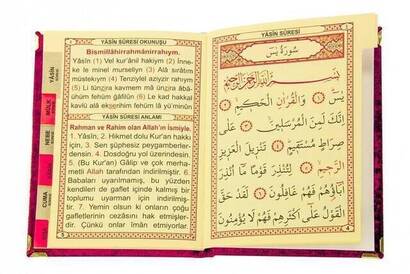 YÂSÎN SÛRESİ OKUNUŞU
Bismillâhirrahmânirrahıym.
Yâsîn (1) Vel kur'ânil hakiym (2) İnne-
ke le minel murseliyn (3) Alâ sırâtım
müstekıym (4) Tenziylel aziyzir rahıym
(5) Li tünzira kavmem mâ ünzira âbâ-
ühüm fehüm ğâfilûn (6) Le kad hakkal
kavlü alâ ekserihim fehüm lâ yü'minûn
YÂSÎN SÛRESİ ANLAMI
Rahman ve Rahim olan Allah'ın İsmiyle.
1. Yâsîn, 2. Hikmet dolu Kur'an hakkı
için, 3. Sen şüphesiz peygamberler-
densin. 4. Dosdoğru yol üzerindesin.
5. (Bu Kur'an) Gâlip ve çok merha-
metli Allah tarafından indirilmiştir. 6.
Babaları uyarılmamış, bu yüzden
kendileri de gaflet içinde kalmış bir
toplumu uyarman için indirilmiştir.
7. Yemin olsun ki onların çoğu
gafletlerinin cezâsını hak etmişler-
dir. Çünkü onlar îman etmiyorlar.
YÂSÎN
MÜLK
NEBE
CUMA
YÂSÎN SÛRESİ
سُورَةُ يٰسٓ
بِسْمِ اللهِ الرَّحْمٰنِ الرَّحِيمِ
يٰسٓ ﴿١﴾ وَالْقُرْاٰنِ الْحَكِيمِ ﴿٢﴾
اِنَّكَ لَمِنَ الْمُرْسَلِينَ ﴿٣﴾ عَلٰى
صِرَاطٍ مُسْتَقِيمٍ ﴿٤﴾ تَنْزِيلَ الْعَزِيزِ
الرَّحِيمِ ﴿٥﴾ لِتُنْذِرَ قَوْمًا مَا اُنْذِرَ
اٰبَاؤُهُمْ فَهُمْ غَافِلُونَ ﴿٦﴾ لَقَدْ حَقَّ
الْقَوْلُ عَلٰى اَكْثَرِهِمْ فَهُمْ لَا يُؤْمِنُونَ